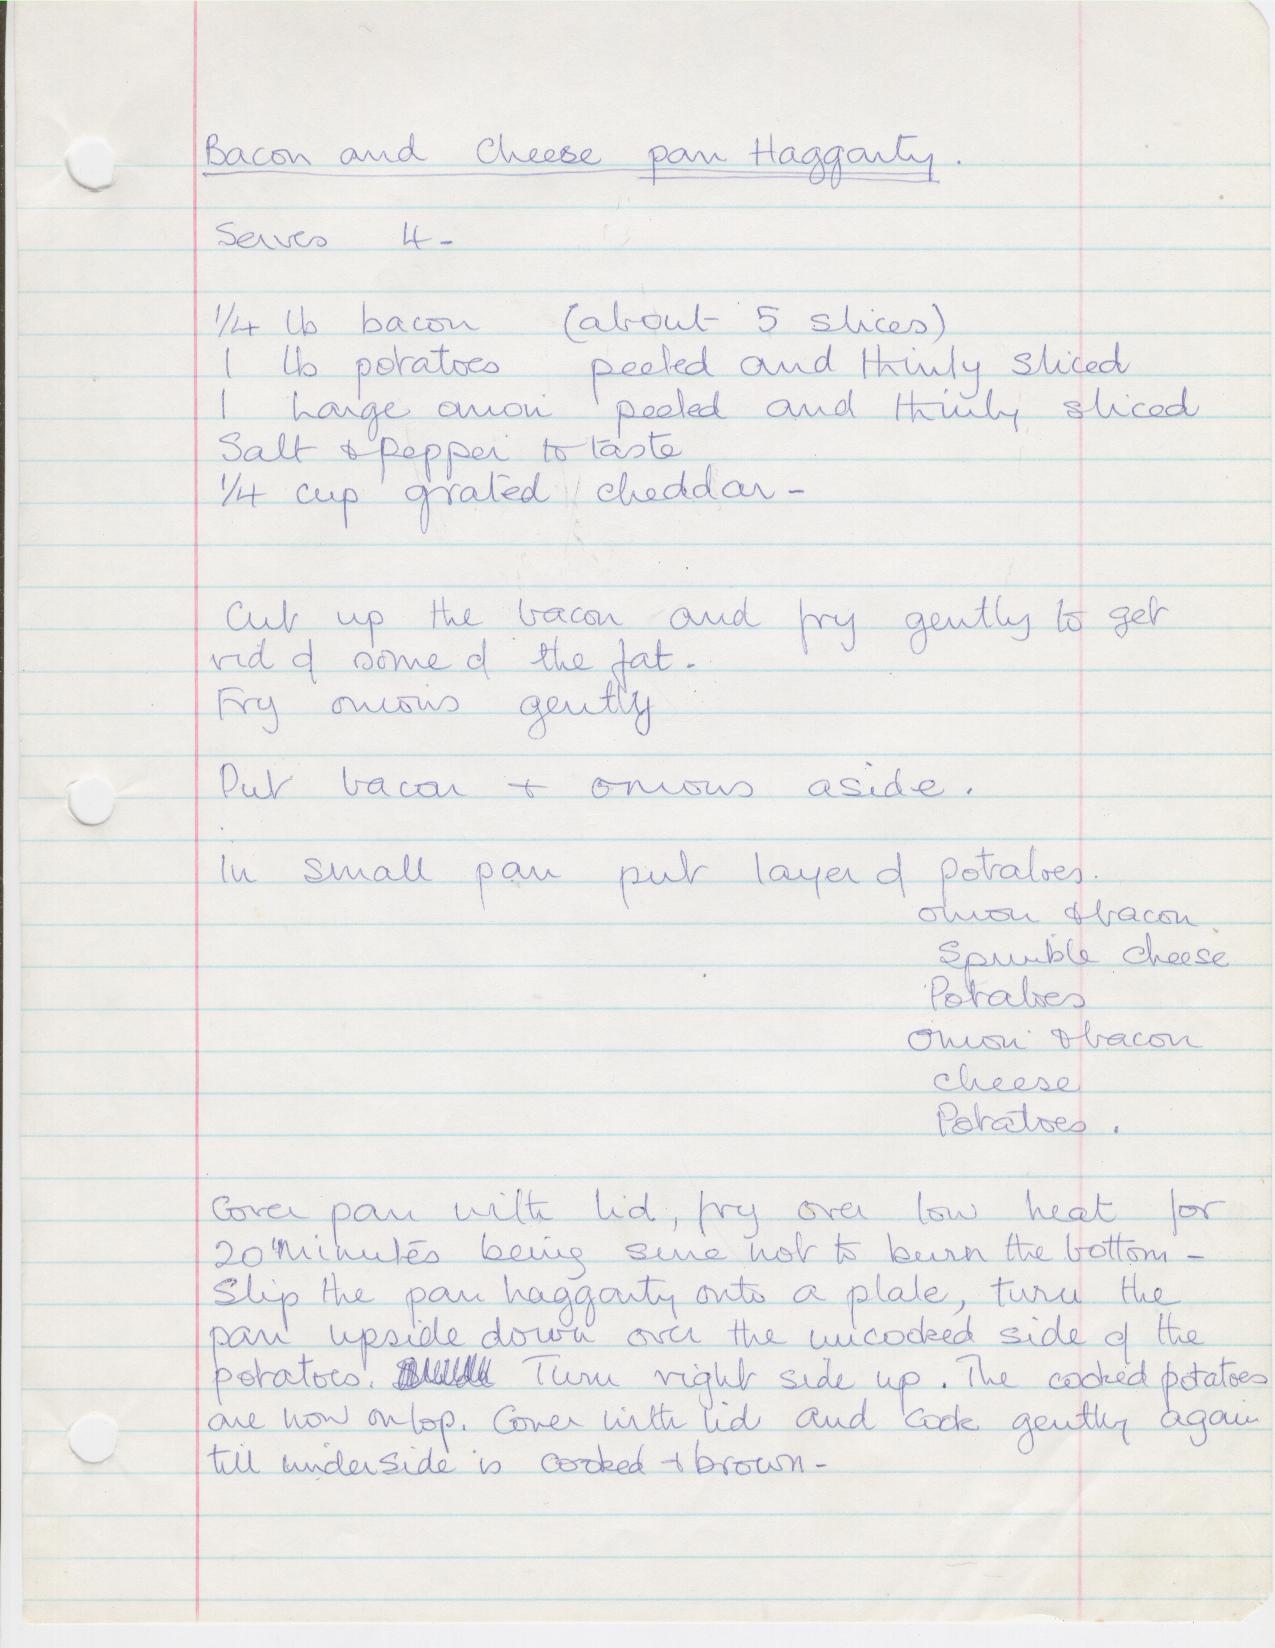 Bacon and Cheese pan Haggarty.
Serves 4 -
1/4 lb bacon (about 5 slices)
1 lb potatoes peeled and thinly sliced
1 Large onion peeled and thinly sliced
Salt & Pepper to taste
1/4 cup grated cheddar -
Cut up the bacon and fry gently to get
rid of some of the fat.
Fry onions gently
Put bacon + onions aside.
In small pan put layer of potatoes.
onion & bacon
Sprinkle cheese
Potatoes
Onion & bacon
cheese
Potatoes.
Cover pan with lid, fry over low heat for
20 Minutes being sure not to burn the bottom -
Slip the pan haggarty onto a plate, turn the
pan upside down over the uncooked side of the
potatoes. Turn right side up. The cooked potatoes
are now on top. Cover with lid and cook gently again
till underside is cooked + brown -